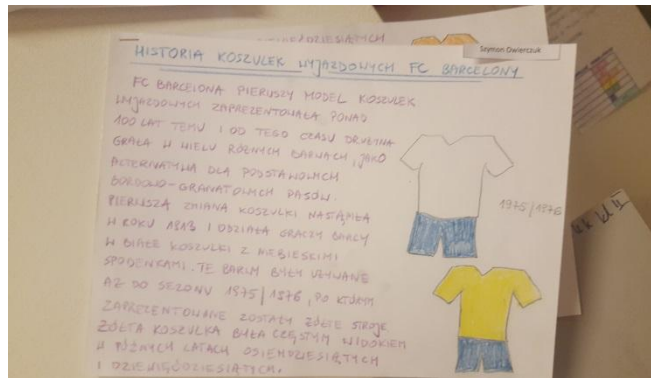 Szymon Owierczuk
HISTORIA KOSZULEK WYJAZDOWYCH FC BARCELONY
FC BARCELONA PIERWSZY MODEL KOSZULEK
WYJAZDOWYCH ZAPREZENTOWAŁA PONAD
100 LAT TEMU I OD TEGO CZASU DRUŻYNA
GRAŁA W WIELU RÓŻNYCH BARWACH, JAKO
ALTERNATYWA DLA PODSTAWOWYCH
BORDOWO-GRANATOWYCH PASÓW.
PIERWSZA ZMIANA KOSZULKI NASTĄPIŁA
W ROKU 1913 I ODZIAŁA GRACZY BARCY
W BIAŁE KOSZULKI Z NIEBIESKIMI
SPODENKAMI. TE BARWY BYŁY UŻYWANE
AŻ DO SEZONU 1975/1976, PO KTÓRYM
ZAPREZENTOWANE ZOSTAŁY ŻÓŁTE STROJE
ŻÓŁTA KOSZULKA BYŁA CZĘSTYM WIDOKIEM
W PÓŹNYCH LATACH OSIEMDZIESIĄTYCH
I DZIEWIĘĆDZIESIĄTYCH.
1975/1976